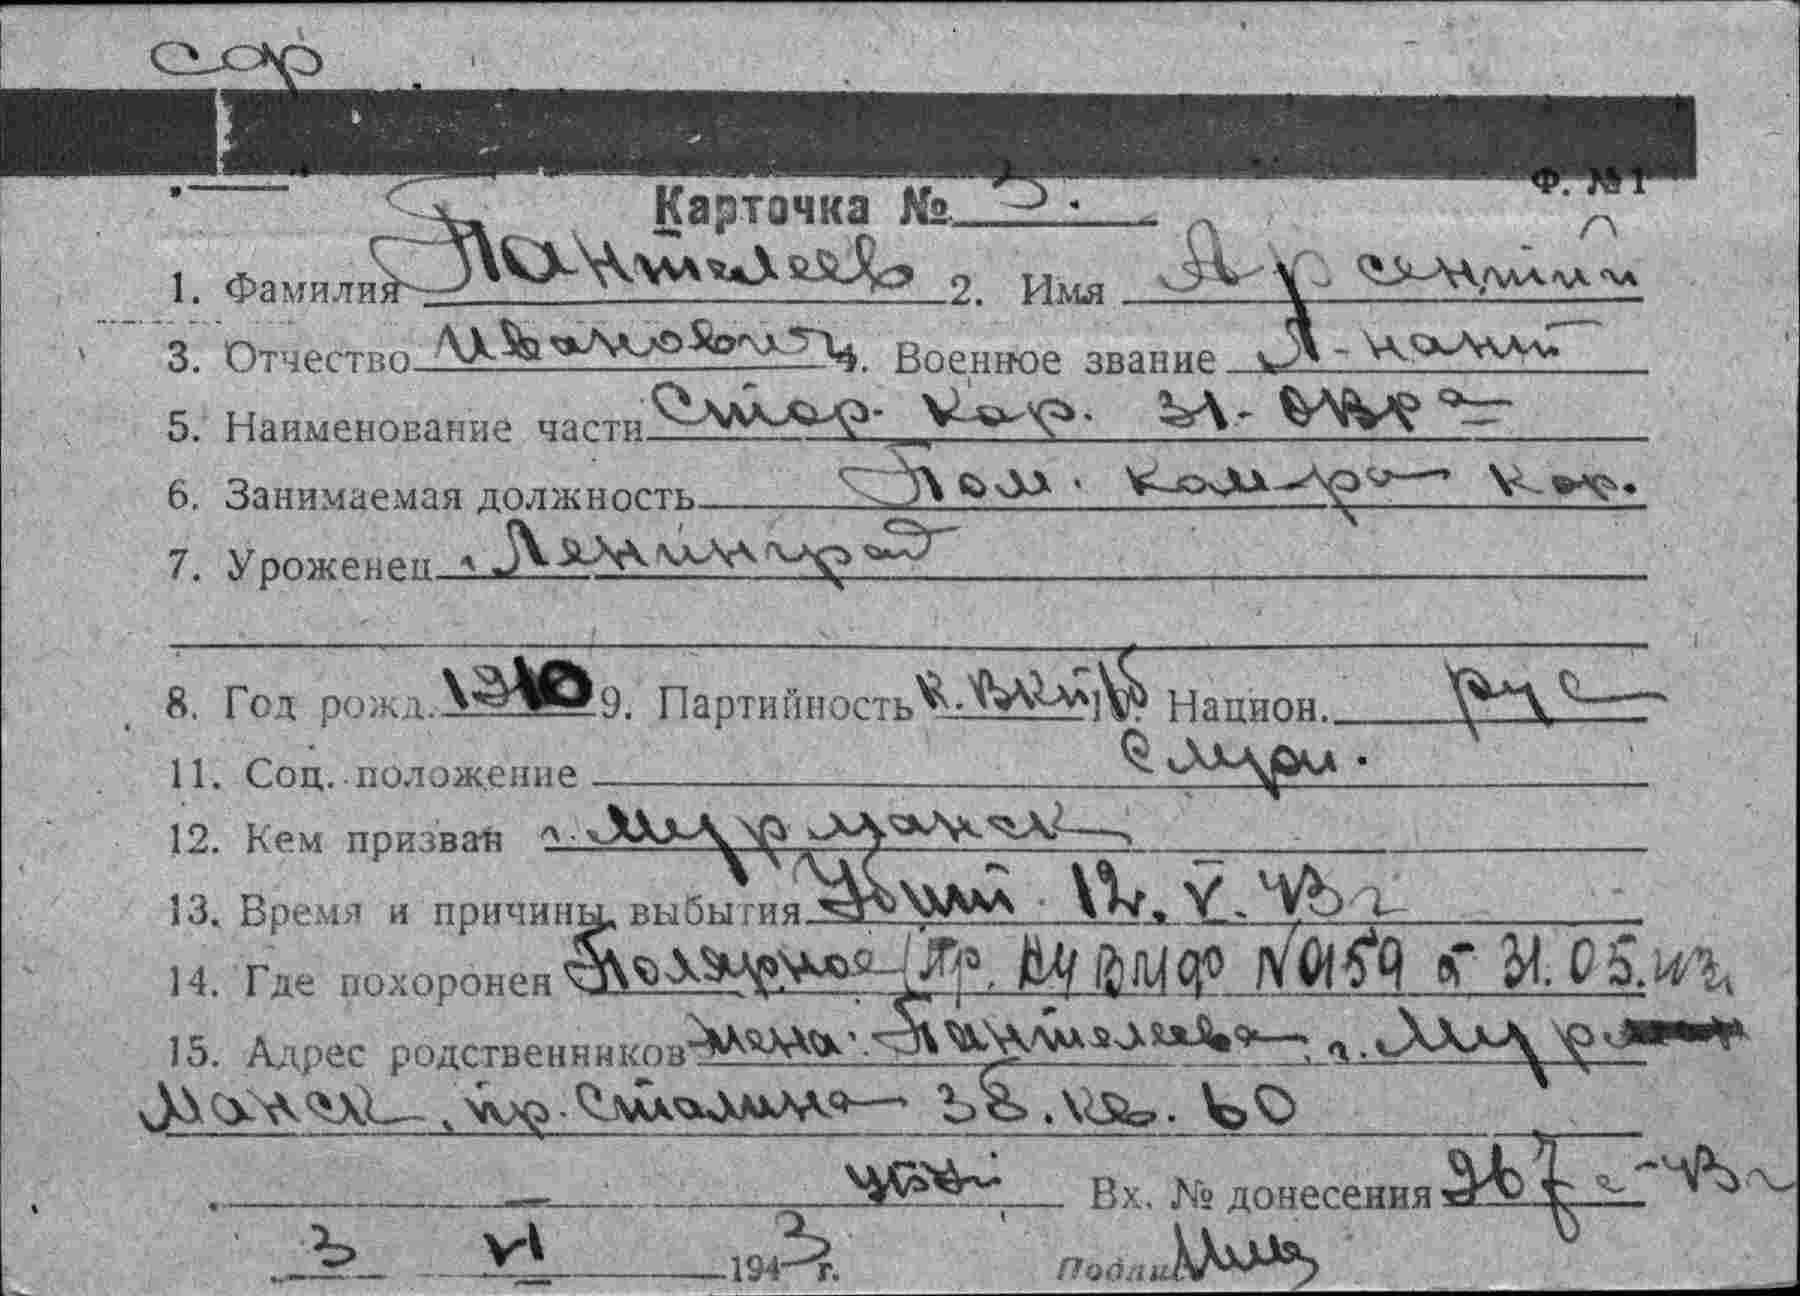 сар
Ф. №1
Карточка № 3.
1. Фамилия Пантелеев 2. Имя Арсентий
3. Отчество Иванович 4. Военное звание Л-нант
5. Наименование части Стор. кор. 31-ОВРа
6. Занимаемая должность Пом. ком-ра кор.
7. Уроженец г. Ленинград
8. Год рожд. 1910 9. Партийность к. ВКП(б) 10. Национ. рус
11. Соц. положение служ.
12. Кем призван г. Мурманск
13. Время и причины выбытия Убит 12. V. 43 г
14. Где похоронен Полярное (Пр. НУ ВМФ №0159 от 31.05.43г.
15. Адрес родственников жена: Пантелеева, г. Мур
манск, пр. Сталина 38. кв. 60
Вх. № донесения 967с-43г
3 VI 1943 г. Подпи